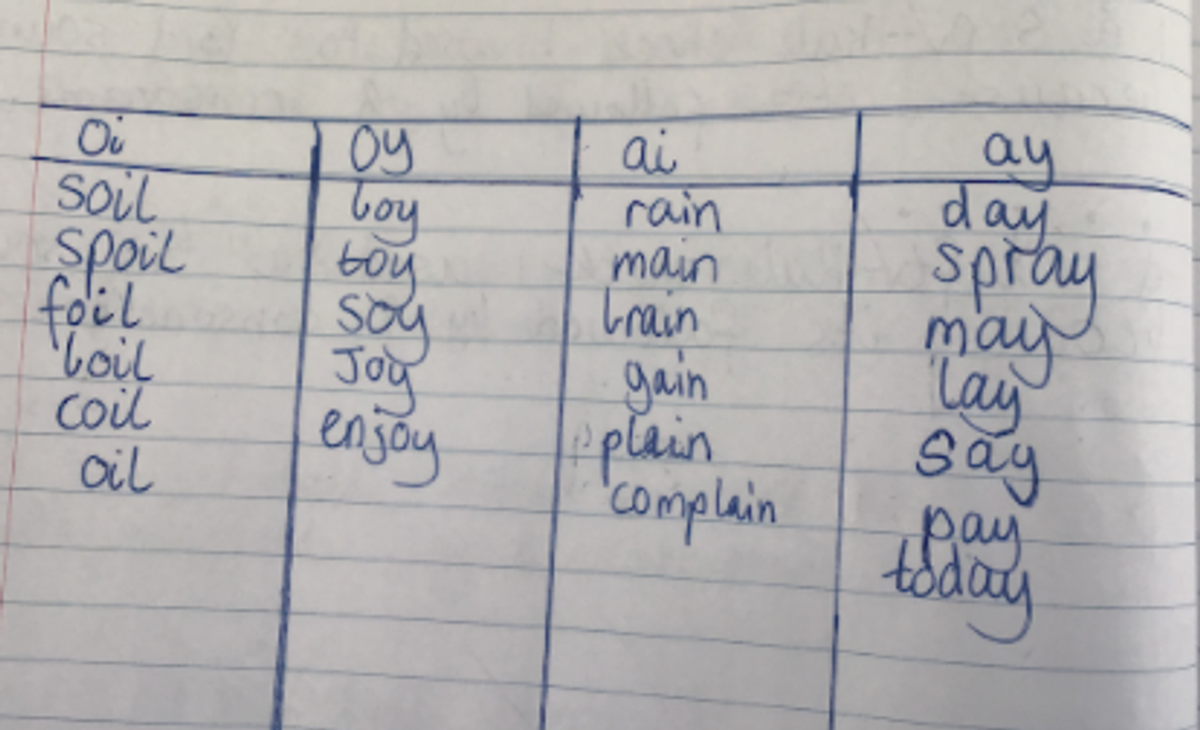 oi oy ai ay
soil boy rain day
spoil toy main spray
foil soy brain may
boil Joy gain lay
coil enjoy plain say
oil complain pay
today